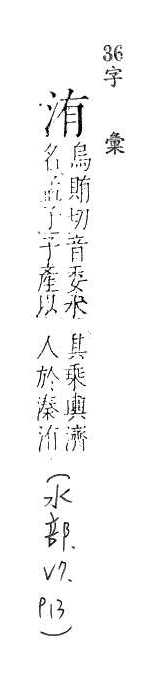 36
字彙
洧
烏賄切音委水
名孟子子產以
其乘輿濟
人於溱洧
(水部.
V7.
P13)